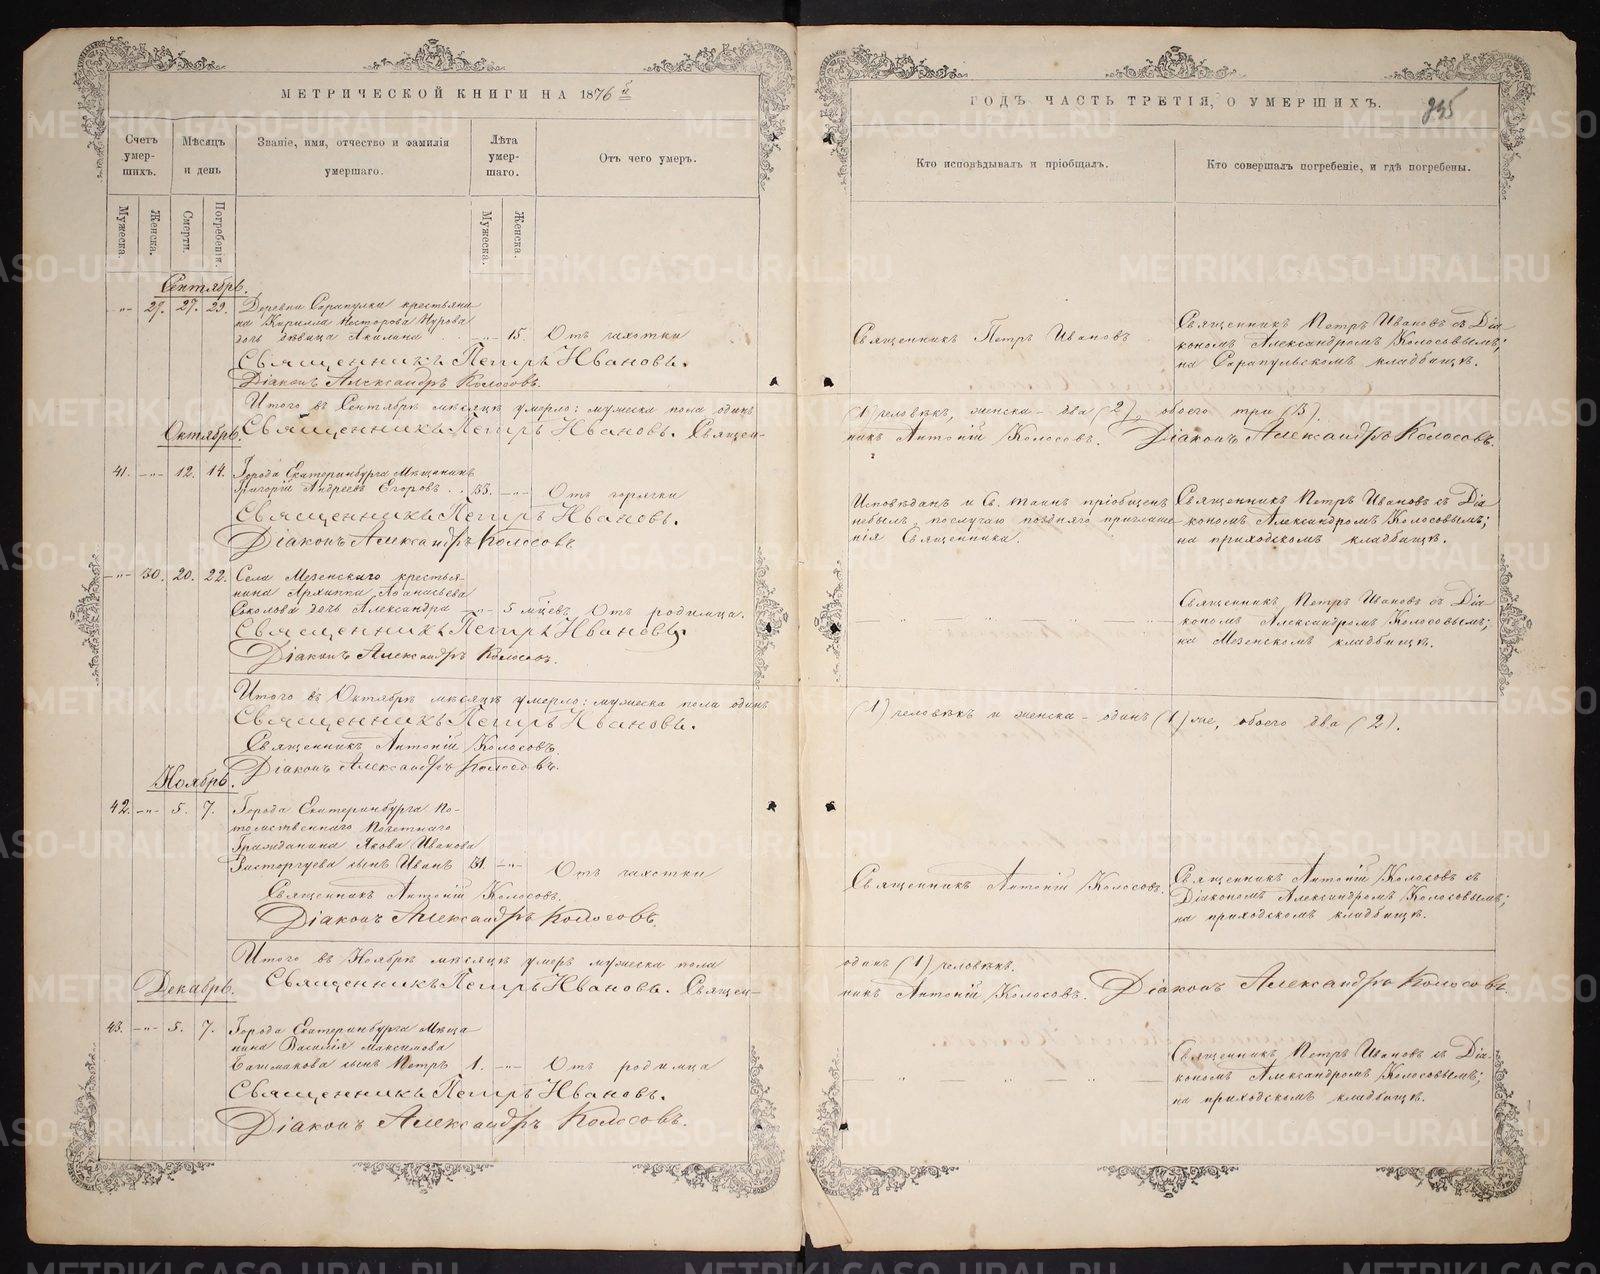 МЕТРИЧЕСКОЙ КНИГИ НА 1876 й
Счетъ умер- шихъ.
Мѣсяцъ и день
Званіе, имя, отчество и фамилія умершаго.
Лѣта умер- шаго.
Отъ чего умеръ.
Мужеска.
Женска.
Смерти.
Погребенія.
Мужеска.
Женска.
Сентябрь.
29. 27. 29. Деревни Сарапулки крестьяни
на Кирилла Несторова
дочь дѣвица Акилина 15. Отъ чахотки
Священникъ Петръ Ивановъ.
Діаконъ Александръ Колосовъ.
Итого въ Сентябрѣ мѣсяцѣ умерло: мужеска пола одинъ
Октябрь. Священникъ Петръ Ивановъ. Священ-
41. 12. 14. Города Екатеринбурга Мѣщанинъ
Григорій Андреевъ Егоровъ 53. Отъ горячки
Священникъ Петръ Ивановъ.
Діаконъ Александръ Колосовъ
30. 20. 22. Села Мезенскаго крестья-
нина Архиппа Аѳанасьева
Соколова дочь Александра 5 мцевъ Отъ родимца.
Священникъ Петръ Ивановъ.
Діаконъ Александръ Колосовъ.
Итого въ Октябрѣ мѣсяцѣ умерло: мужеска пола одинъ
Священникъ Петръ Ивановъ.
Священникъ Антоній Колосовъ.
Діаконъ Александръ Колосовъ.
Ноябрь.
42. 5. 7. Города Екатеринбурга По-
томственнаго Почетнаго
Гражданина Якова Иванова
Расторгуева сынъ Иванъ 31. Отъ чахотки
Священникъ Антоній Колосовъ.
Діаконъ Александръ Колосовъ.
Итого въ Ноябрѣ мѣсяцѣ умеръ мужеска пола
Декабрь. Священникъ Петръ Ивановъ. Священ-
43. 5. 7. Города Екатеринбурга Мѣща
нина Василія Максимова
Башмакова сынъ Петръ 1. Отъ родимца
Священникъ Петръ Ивановъ.
Діаконъ Александръ Колосовъ.
ГОДЪ ЧАСТЬ ТРЕТІЯ, О УМЕРШИХЪ.
Кто исповѣдывалъ и пріобщалъ.
Кто совершалъ погребеніе, и гдѣ погребены.
Священникъ Петръ Ивановъ
Священникъ Петръ Ивановъ съ Діа
кономъ Александромъ Колосовымъ;
на Сарапульскомъ кладбищѣ.
(1) человѣкъ, женска - два (2), обоего три (3).
никъ Антоній Колосовъ. Діаконъ Александръ Колосовъ.
Исповѣданъ и Св. таинъ пріобщенъ
небылъ послучаю поздняго приглаше
нія Священника.
Священникъ Петръ Ивановъ съ Діа
кономъ Александромъ Колосовымъ;
на приходскомъ кладбищѣ.
Священникъ Петръ Ивановъ съ Діа
кономъ Александромъ Колосовымъ;
на Мезенскомъ кладбищѣ.
(1) человѣкъ и женска - одинъ (1) че, обоего два (2).
Священникъ Антоній Колосовъ.
Священникъ Антоній Колосовъ съ
Діакономъ Александромъ Колосовымъ;
на приходскомъ кладбищѣ.
одинъ (1) человѣкъ.
никъ Антоній Колосовъ. Діаконъ Александръ Колосовъ.
Священникъ Петръ Ивановъ съ Діа-
кономъ Александромъ Колосовымъ;
на приходскомъ кладбищѣ.
METRIKI.GASO-URAL.RU